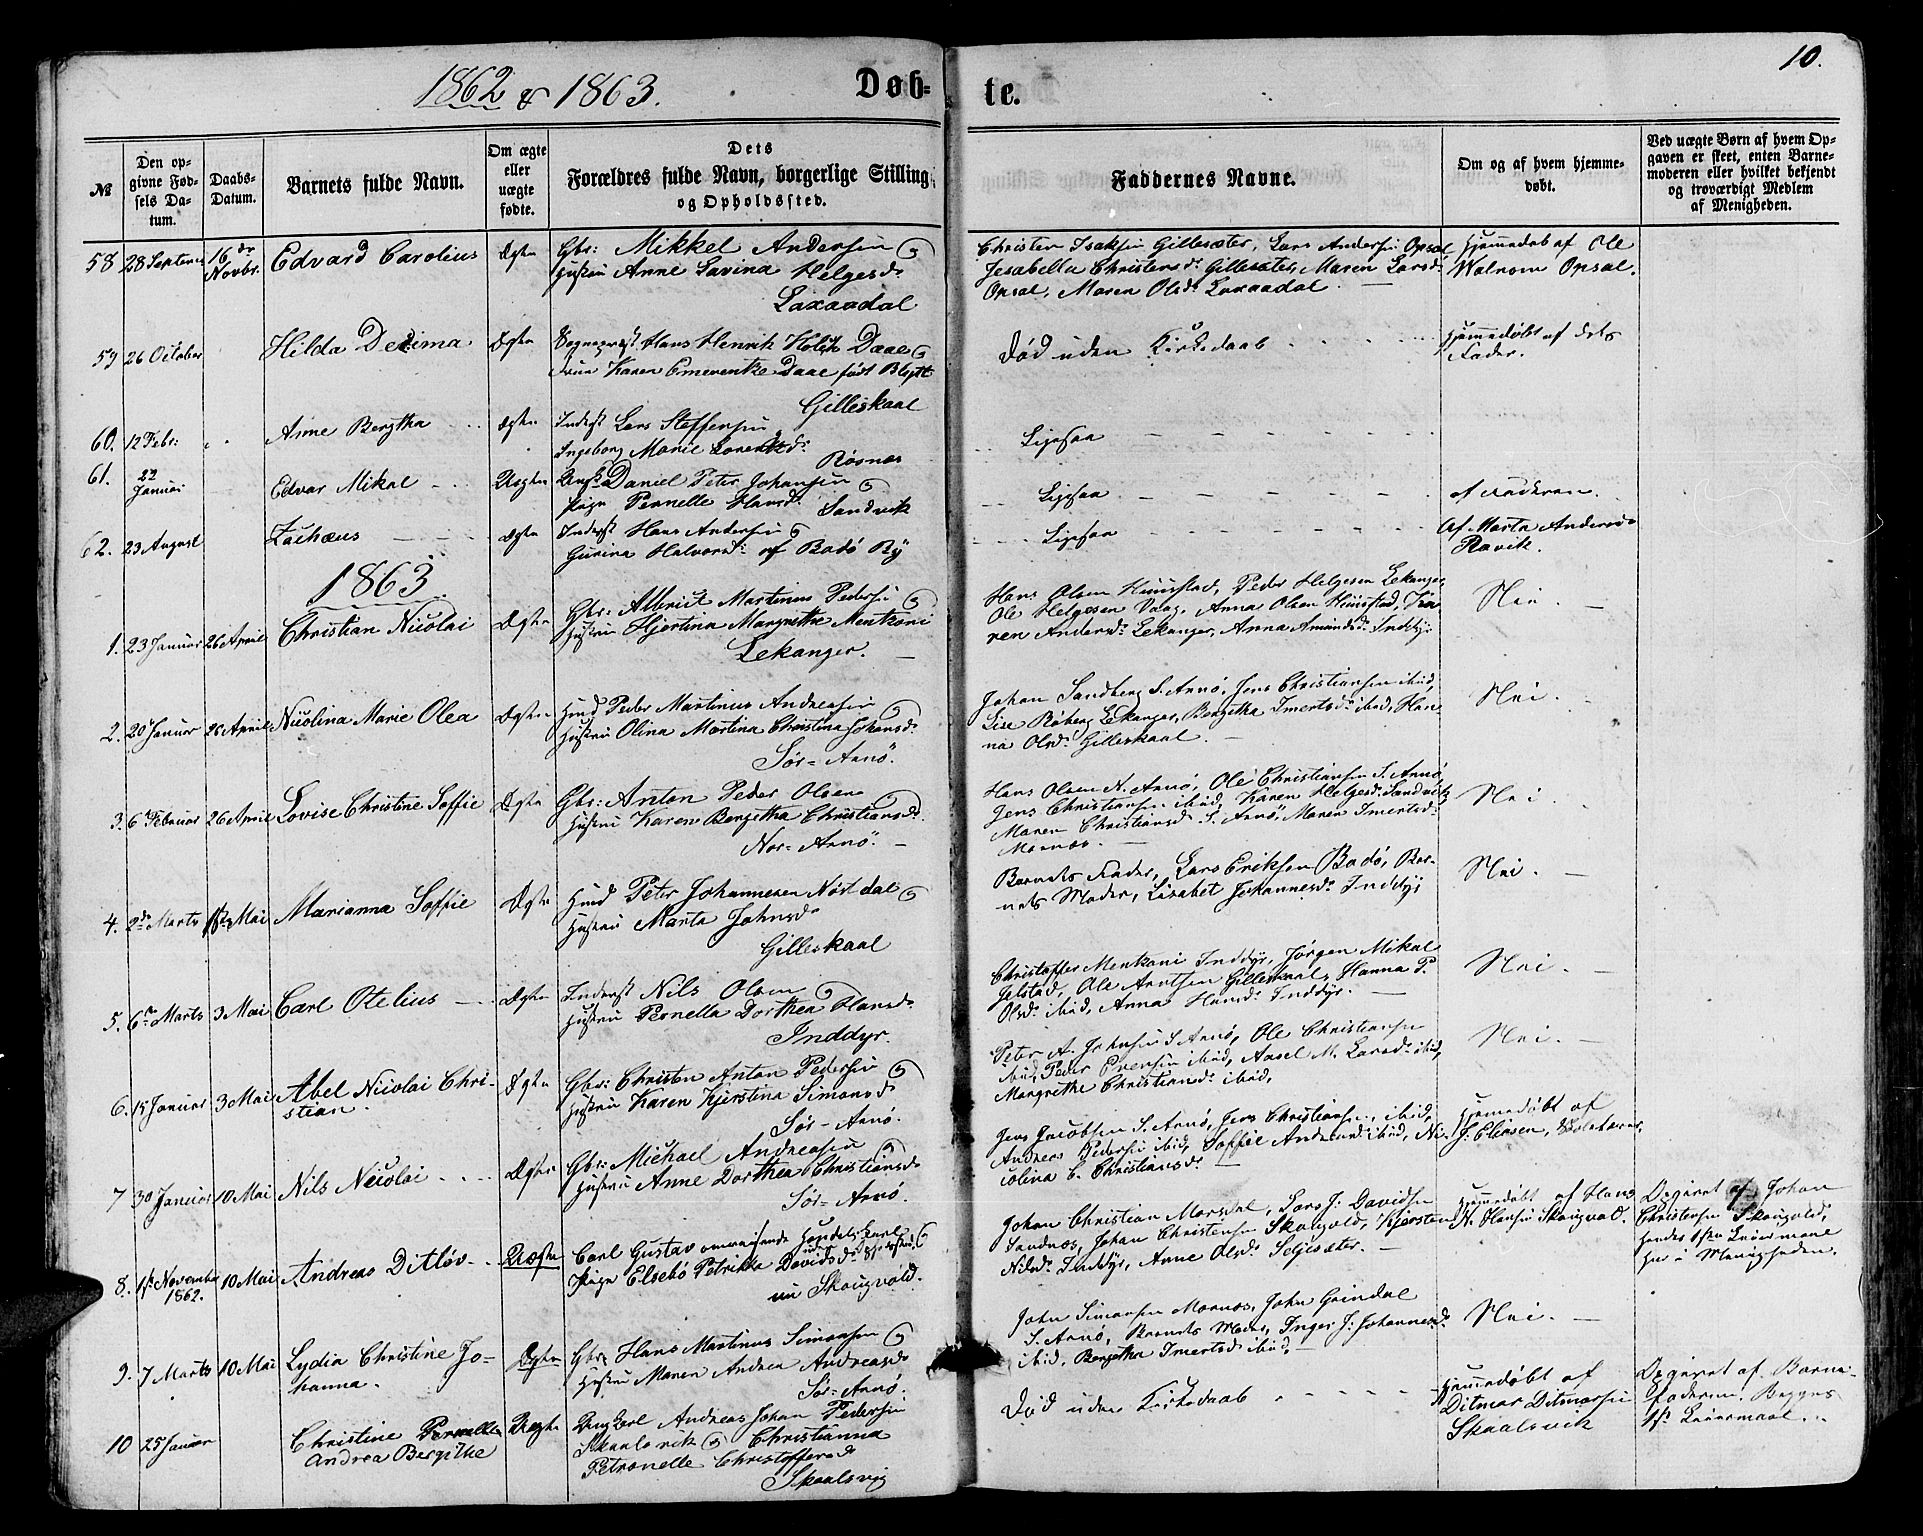 1862 & 1863.
Døb=
te.
10.
№
Den op-
givne Fød-
sels Da-
tum.
Daabs-
Datum.
Barnets fulde Navn.
Om ægte
eller
uægte
fødte.
Dets
Forældres fulde Navn, borgerlige Stilling
og Opholdssted.
Faddernes Navne.
Om og af hvem hjemme-
døbt.
Ved uægte Børn af hvem Op-
gaven er skeet, enten Barne-
moderen eller hvilket bekjendt
og troværdigt Medlem
af Menigheden.
58 28 September 16de Novbr. Edvard Carolius Ægte
Gbr: Mikkel Andersen og
Hustru Anne Lavina Helgesdr
Laxaadal
Christen Isaksen Gillesæter, Lars Andersen Opsal,
Jesabella Christensdr Gillesæter, Maren Larsdr
Opsal, Maren Olsdr Laxaadal.
Hjemmedøb af Ole
Walnom Opsal.
59 26 October Hilda Decima Ægte
Sognepræst Hans Henrik Holck Daae og
Frue Karen Emerentze Daae født Blytt
Gilleskaal
Død uden Kirkedaab
Hjemmedøbt af dets
Fader.
60. 12 Febr: Anne Bergtha Ægte
Inderst Lars Steffensen
Ingeborg Marie Lorentzdr
Røsnes
Ligesaa
61. 22 Januar Edvar Mikal Uægte
Ungk. Daniel Peter Johansen og
Pige Pernelle Hansdr Sandvik
Ligesaa
af Faderen.
62. 23 August Zachæus Ægte
Inderst Hans Andersen og
Gurina Halvorsdr af Bodø By
Ligesaa
Af Marta Andersdr
Ravik.
1863
1. 23 Januar 26 April Christian Nicolai Ægte
Gbr: Albrict Martinus Pedersen og
Hustru Hjertina Margrethe Mentzoni
Lekanger.
Hans Olsen Hustad, Peder Helgesen Lekanger,
Ole Helgesen Vaag, Anna Olsen Hustad, Ka-
ren Andersdr Lekanger, Anna Amundsdr Inddyr
Nei.
2. 20 Januar 26 April Nicolina Marie Olea Ægte
Husmd Peder Martinus Andreasen og
Hustru Olina Martina Christina Johansdr
Sør=Arnø.
Johan Sandberg S. Arnø, Jens Christiansen ibid,
Lise Røberg Lekanger, Bergetha Imertsdr ibid, Han-
na Olsdr Gilleskaal.
Nei.
3. 6 Februar 26 April Lovise Christine Soffie Ægte
Gbr: Anton Peder Olsen og
Hustru Karen Bergetha Christiansdr
Nor=Arnø.
Hans Olsen N. Arnø, Ole Christiansen S. Arnø,
Jens Christiansen ibid, Karen Helgesdr Sandvik,
Maren Christiansdr S. Arnø, Maren Imertsdr
Mornes.
Nei.
4. 2den Marts 1ste Mai Marianna Soffie Ægte
Husmd Peter Johannesen Nordal og
Hustru Marta Johnsdr
Gilleskaal
Barnets Fader, Lars Eriksen Bodø, Bar-
nets Moder, Lisabet Johannesdr Inddyr
Nei.
5. 6te Marts 3 Mai Carl Otelius Ægte
Inderst Nils Olsen og
Hustru Pernella Dorthea Hansdr
Inddyr.
Christoffer Mentzoni Inddyr, Jørgen Mikal
Jelstad, Ole Arntsen Gilleskaal, Hanna P.
Olsdr ibid, Anna Hansdr Inddyr.
Nei.
6. 15 Januar 3 Mai Abel Nicolai Chri-
stian. Ægte
Gbr: Christen Anton Pedersen og
Hustru Karen Kjerstina Simonsdr
Sør-Arnø.
Peter A. Johnsen S. Arnø, Ole Christiansen
ibid, Peder Evensen ibid, Aasel M. Larsdr ibid,
Margrethe Christiansdr ibid.
Nei.
7 30 Januar 10 Mai Nils Nicolai Ægte
Gbr: Michael Andreasen og
Hustru Anne Dorthea Christiansdr
Sør-Arnø.
Jens Jacobsen S. Arnø, Jens Christiansen ibid,
Andreas Pedersen ibid, Soffie Andersdr ibid, Ni-
colina C. Christiansdr
Hjemmedøbt af
J. Eliasen, Skolelærer.
8. 1ste November 1862. 10 Mai Andreas Ditløv Uægte
Carl Gustav omreisende Handelskarl og
Pige Elsebø Petrikka Davidsdr
nu Skougvold.
Johan Christian Morsdal, Lars J. Davidsen
Sandnes, Johan Christensen Skougvold, Kjersten
Nilsdr Inddyr, Anne Olsdr Seljesæter.
Hjemmedøbt af Hans
N. Hansen Skougvold.
Opgivet af Johan
Christensen Skougvold,
hendes 1ste Leiermaal
her i Menigheden.
9. 7 Marts 10 Mai Lydia Christine Jo=
hanna. Ægte
Gbr: Hans Martinus Simonsen og
Hustru Maren Andrea Andreasdr
Sør-Arnø.
John Simonsen Mornes, John Grindal
S. Arnø, Barnets Moder, Inger J. Johannesdr
ibid, Bergetha Imertsdr ibid,
Nei.
10 25 Januar Christine Pernella
Andrea Bergithe Uægte
Ungkarl Andreas Johan Pedersen
Skaalsvik og Christianna
Petronelle Christoffersdr
Skaalsvig
Død uden Kirkedaab
Hjemmedøbt af
Ditmar Ditmarsen
Skaalsvik
Opgivet af Barne-
faderen. Begges
1ste Leiermaal.